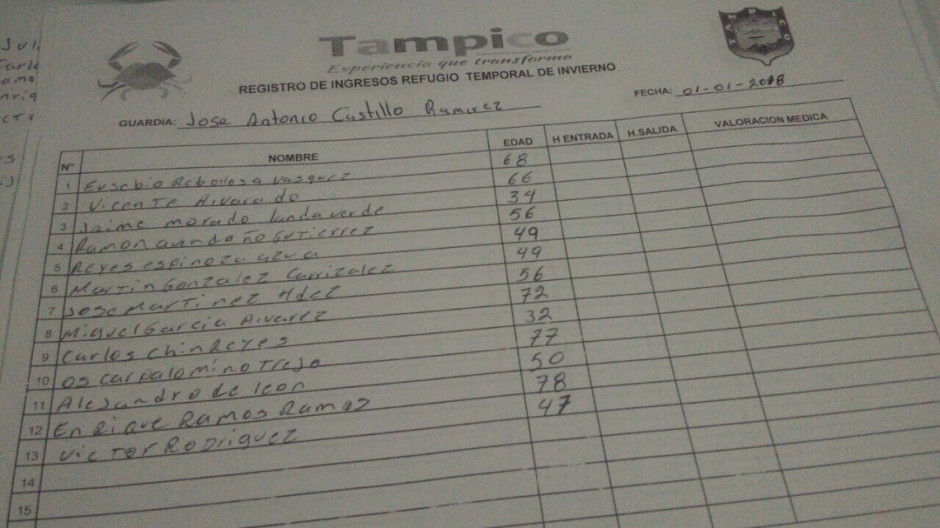 Tampico
Experiencia que transforma
REGISTRO DE INGRESOS REFUGIO TEMPORAL DE INVIERNO
FECHA: 01-01-2018
GUARDIA: Jose Antonio Castillo Ramirez
N° NOMBRE EDAD H ENTRADA H.SALIDA VALORACION MEDICA
1 Eusebio Rebollosa Vasquez 68
2 Vicente Alvarado 66
3 Jaime morado landaverde 34
4 Ramon avendaño Gutierrez 56
5 Reyes espinoza azua 49
6 Martin Gonzalez Carrizalez 49
7 Jose Martinez Hdez 56
8 Miguel Garcia Alvarez 72
9 Carlos Chin Reyes 32
10 Oscar palomino Trejo 77
11 Alejandro de leon 50
12 Enrique Ramos Ramoz 78
13 Victor Rodriguez 47
14
15